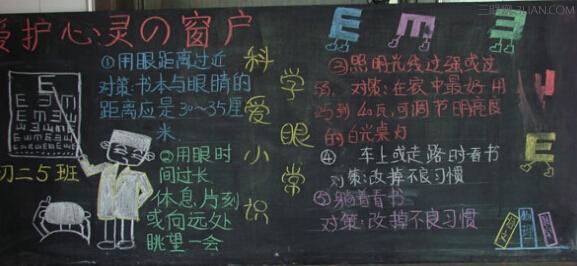 爱护心灵の窗户
E m E
三联网 3LIAN.COM
①用眼距离过近
对策:书本与眼睛的
距离应是30~35厘
米.
②用眼时
间过长
休息片刻
或向远处
眺望一会
初二5班
科学爱眼小常识
③照明光线过强或过
弱. 对策:在家中最好用
25到40瓦,可调节明亮度
的台灯为
④ 车上或走路时看书
对策:改掉不良习惯
⑤躺着看书
对策:改掉不良习惯
E